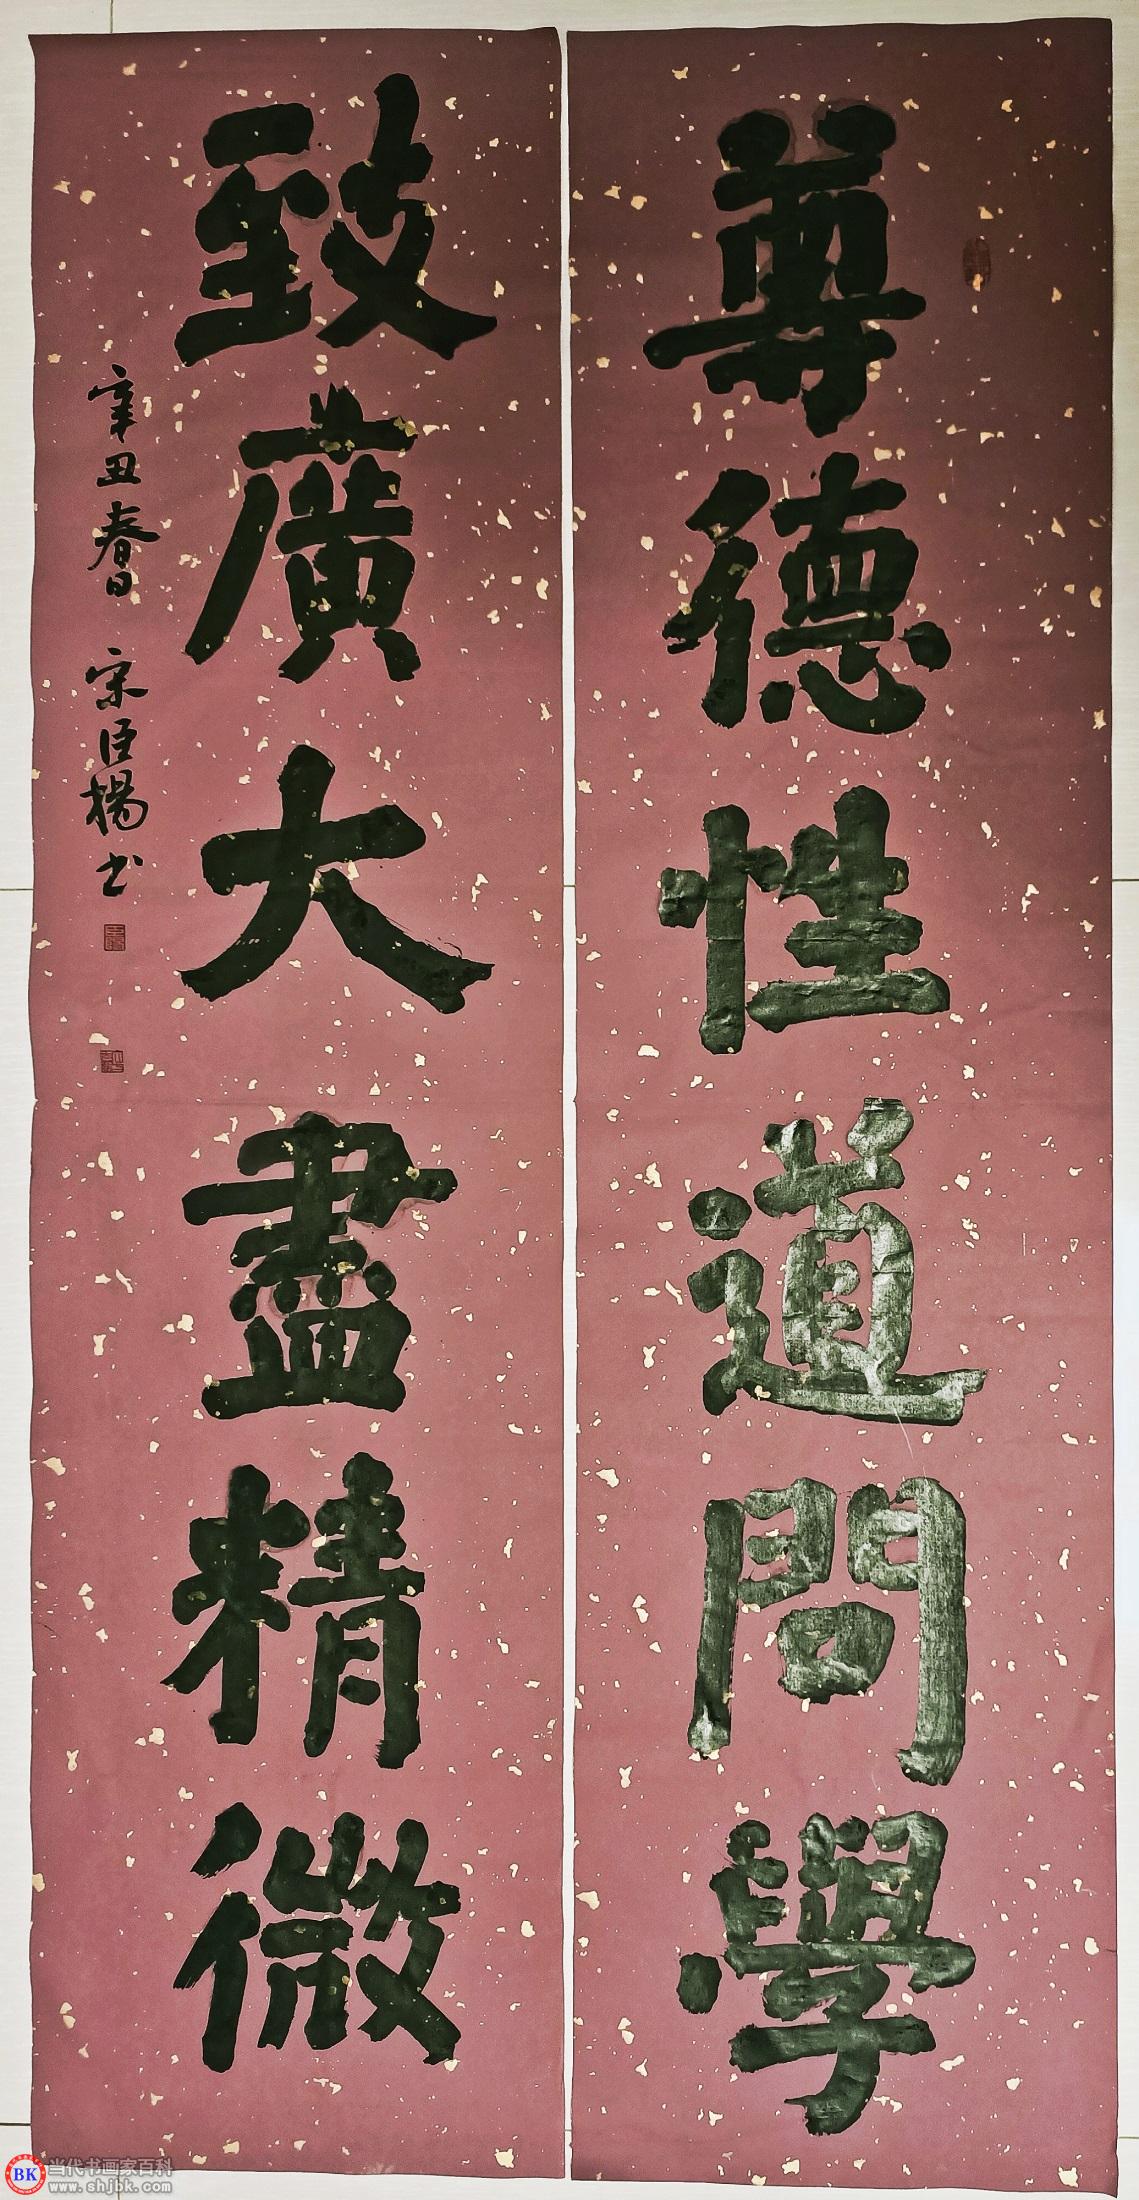 尊德性道問學
致廣大盡精微
辛丑春日 宋臣楊书
BK 当代书画家百科
www.shjbk.com